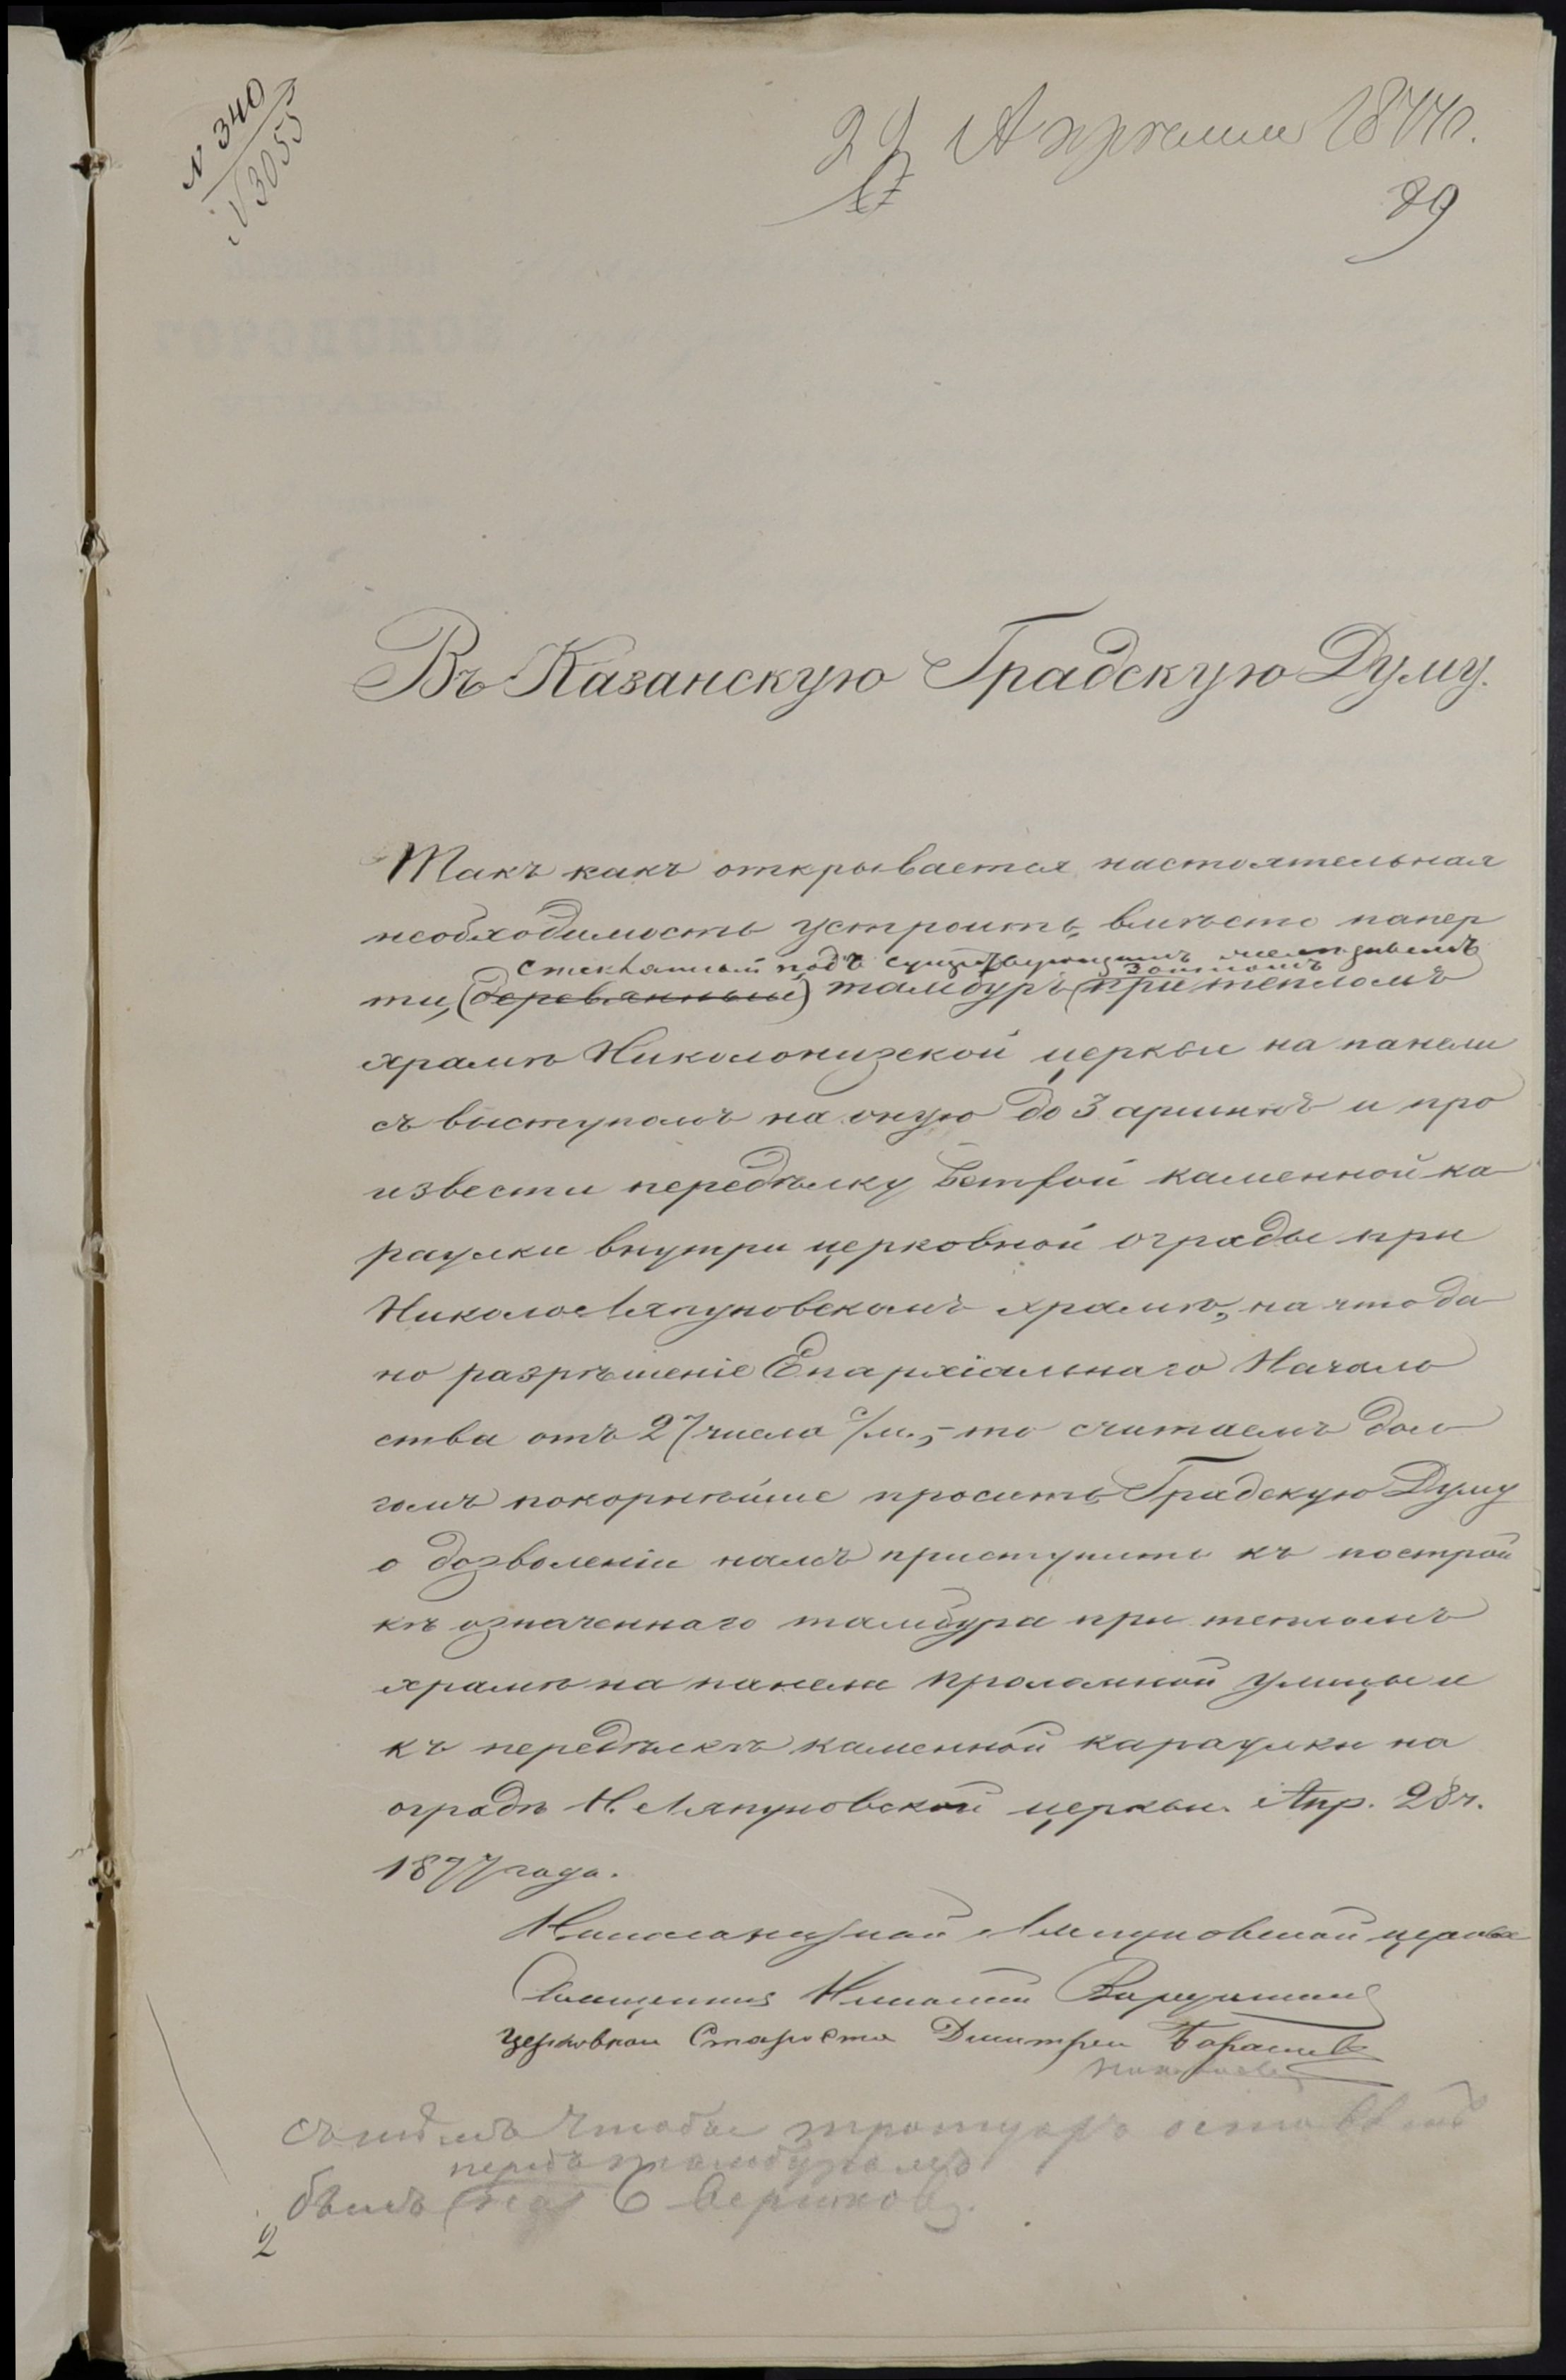 N 340
N 3055
29 Апреля 1877.
89
Въ Казанскую Градскую Думу.
Такъ какъ открывается настоятельная
необходимость устроить, вмѣсто папер
стеклянный подъ существующимъ зонтомъ
ти, (деревянный) тамбуръ при тепломъ
храмѣ Николонизской церкви на панели
съ выступомъ на оную до 3 аршинъ и про
извести передѣлку ветхой каменной ка
раулки внутри церковной ограды при
Николо Ляпуновскомъ храмѣ, на что да
но разрѣшеніе Епархіальнаго Началь
ства отъ 27 числа с/м., – то считаемъ дол
гомъ покорнѣйше просить Градскую Думу
о дозволеніи намъ приступить къ построй
кѣ означеннаго тамбура при тепломъ
храмѣ на панели Проломной улицы и
къ передѣлкѣ каменной караулки на
оградѣ Н. Ляпуновской церкви. Апр. 28 ч.
1877 года.
Николонизкой Ляпуновской церкви
Священникъ Николай
Церковной Староста Дмитрей
съ тѣмъ чтобы тротуаръ
передъ тамбуромъ
былъ 6 вершковъ.
2